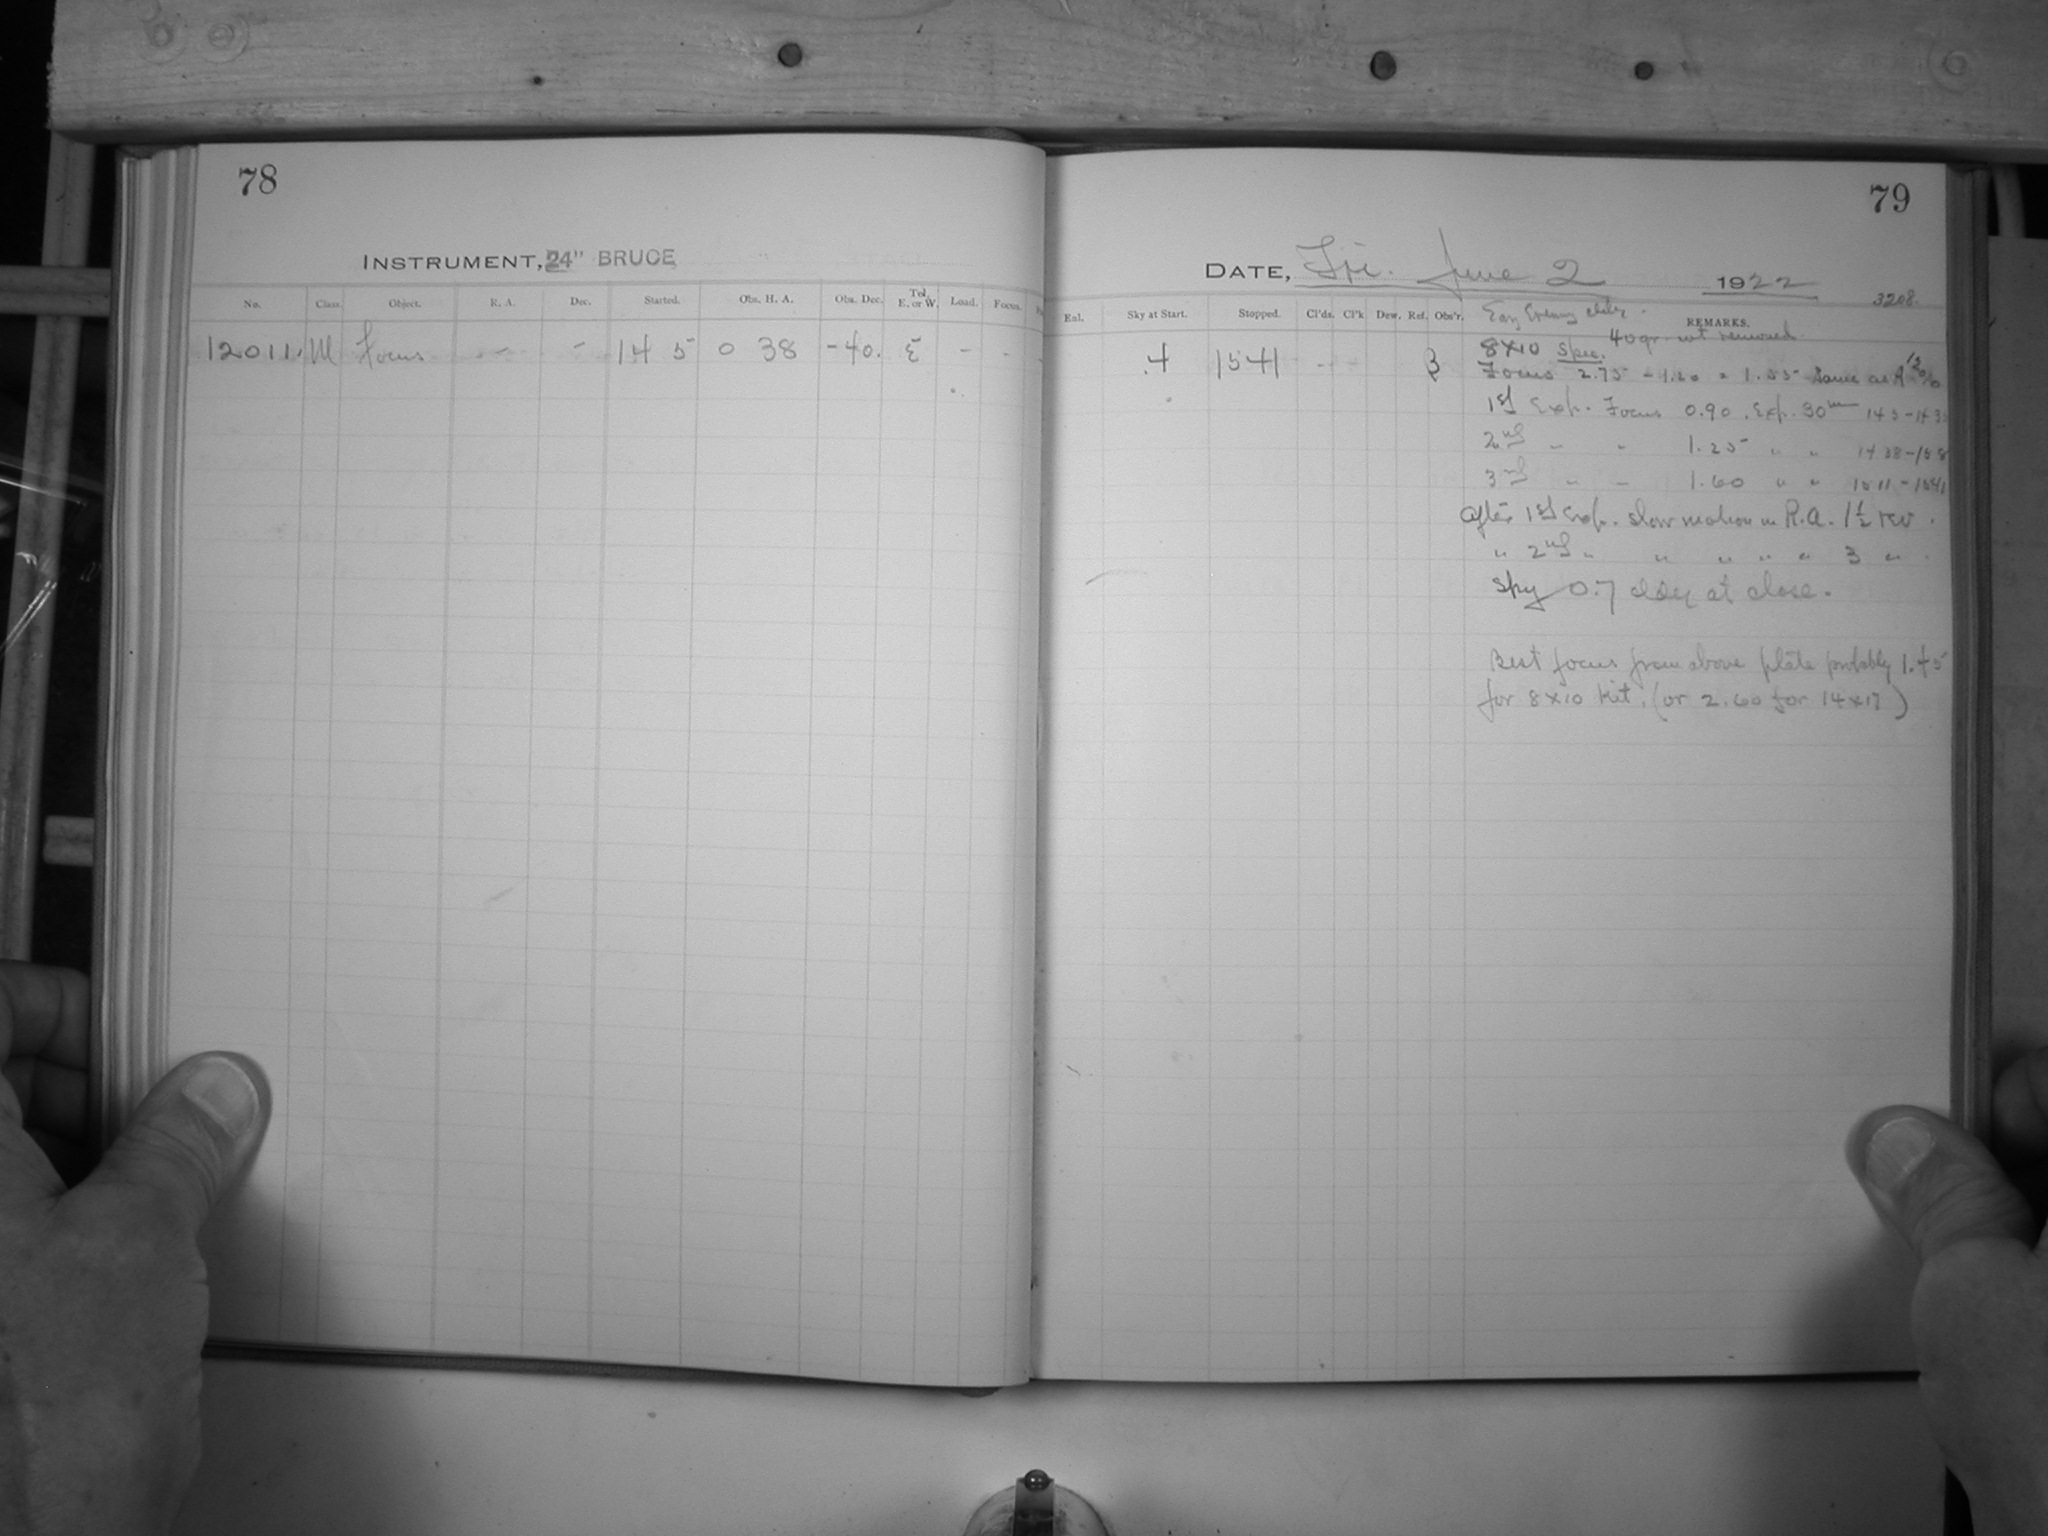 78
INSTRUMENT, 24" BRUCE
No. Class. Object. R. A. Dec. Started. Obs. H. A. Obs. Dec. Tel. E. or W. Load. Focus.
12011. M Focus - - 14 5 0 38 -40. E - -
79
DATE, Fri. June 2 1922
3208.
Rel. Sky at Start. Stopped. Cl'ds. Cl'k Dew. Ref. Obs'r. REMARKS.
Evening cldy.
40 gr. wt removed.
.4 1541 - - 8x10 Spec.
Focus 2.75 - 1.20 = 1.55 Same as A
1st Exp. Focus 0.90. Exp. 30m 14 5-1435
2nd " " 1.25 " " 1438-158
3rd " " 1.60 " " 1511-1541
After 1st Exp. slow motion in R.A. 1 1/2 rev.
" 2nd " " " " " 3 "
Sky 0.7 cldy at close.
Best focus from above plate probably 1.45
for 8x10 kit. (or 2.60 for 14x17)